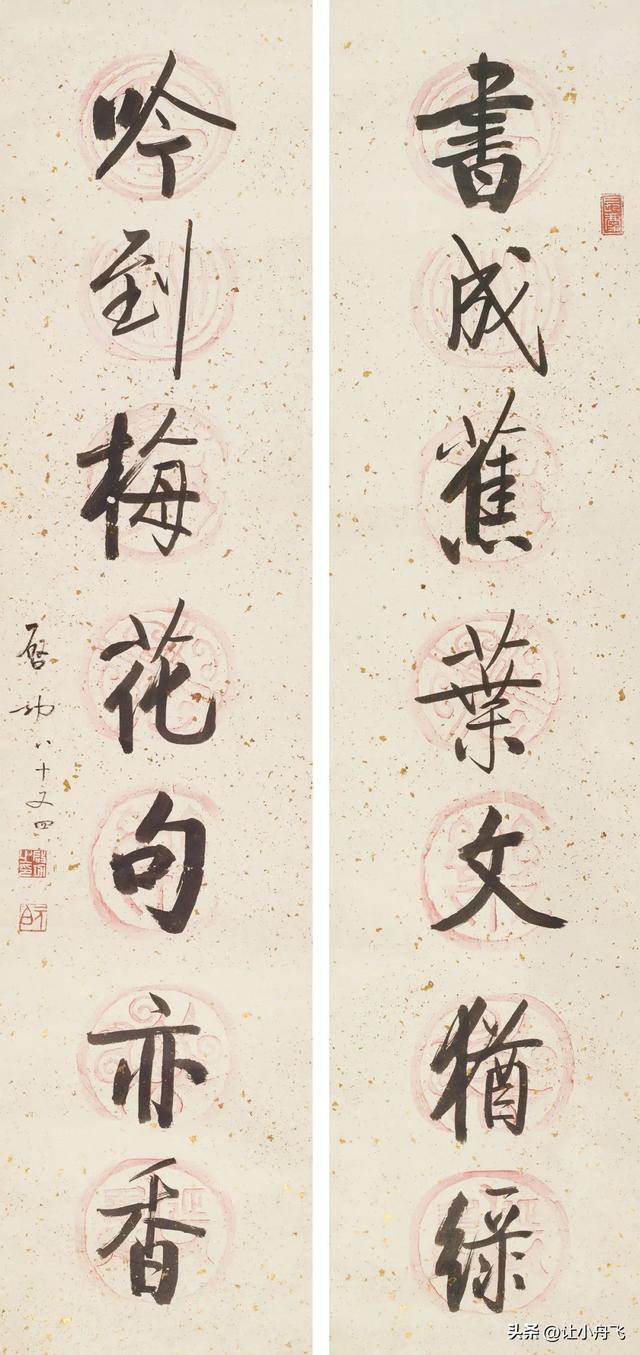 書成蕉葉文猶綠
吟到梅花句亦香
啓功八十又四
头条 @让小舟飞